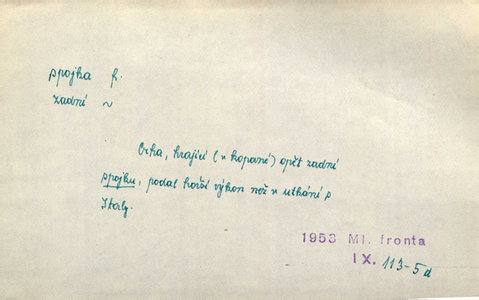 spojka f.
zadní ~
Crha, hrající (v kopané) opět zadní
spojku, podal horší výkon než v utkání s
Italy.
1953 Ml. fronta
IX. 113-5d